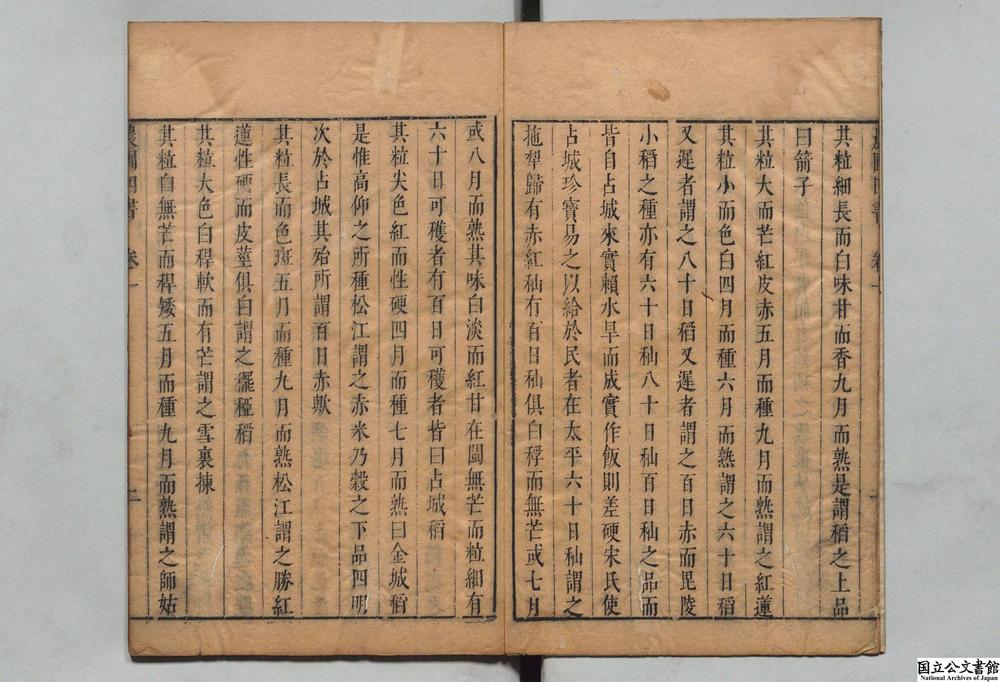 其粒細長而白味甘而香九月而熟是謂稻之上品
曰箭子
其粒大而芒紅皮赤五月而種九月而熟謂之紅蓮
其粒小而色白四月而種六月而熟謂之六十日稻
又遲者謂之八十日稻又遲者謂之百日赤而毘陵
小稻之種亦有六十日秈八十日秈百日秈之品而
皆自占城來實賴水旱而成實作飯則差硬宋氏使
占城珍寶易之以給於民者在太平六十日秈謂之
拖犂歸有赤紅秈有百日秈俱白稃而無芒或七月
或八月而熟其味白淡而紅甘在閩無芒而粒細有
六十日可穫者有百日可穫者皆曰占城稻
其粒尖色紅而性硬四月而種七月而熟曰金城稻
是惟高仰之所種松江謂之赤米乃穀之下品四明
次於占城其殆所謂百日赤歟
其粒長而色斑五月而種九月而熟松江謂之勝紅
蓮性硬而皮莖俱白謂之䆉稏稻
其粒大色白稈軟而有芒謂之雪裏揀
其粒白無芒而稈矮五月而種九月而熟謂之師姑
農圃四書 卷一 二
国立公文書館
National Archives of Japan